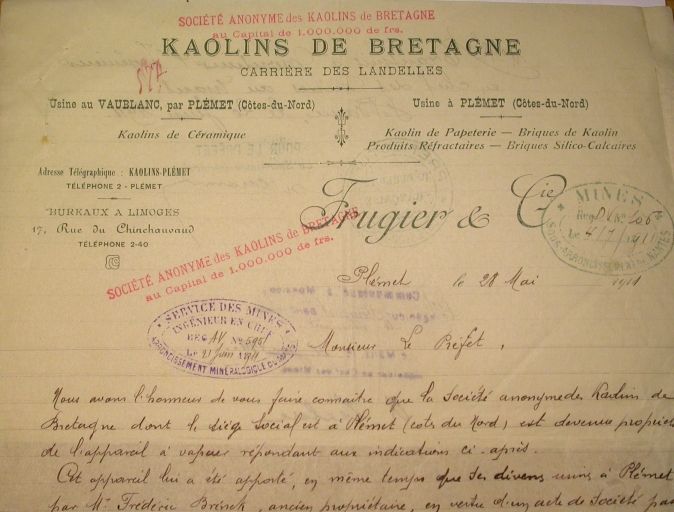 SOCIÉTÉ ANONYME des KAOLINS de BRETAGNE
au Capital de 1.000.000 de frs.
KAOLINS DE BRETAGNE
CARRIÈRE DES LANDELLES
Usine au VAUBLANC, par PLÉMET (Côtes-du-Nord)
Kaolins de Céramique
Usine à PLÉMET (Côtes-du-Nord)
Kaolin de Papeterie — Briques de Kaolin
Produits Réfractaires — Briques Silico-Calcaires
Adresse Télégraphique : KAOLINS-PLÉMET
TÉLÉPHONE 2 - PLÉMET
BUREAUX A LIMOGES
17, Rue du Chinchauvaud
TÉLÉPHONE 2-40
Frugier & Cie
MINES
SOCIÉTÉ ANONYME des KAOLINS de BRETAGNE
au Capital de 1.000.000 de frs.
Plémet le 28 Mai 1911
SERVICE DES MINES
INGÉNIEUR EN CHEF
REG AV No 5951
LE 21 Juin 1911
ARRONDISSEMENT MINÉRALOGIQUE DU
Monsieur Le Préfet,
Nous avons l'honneur de vous faire connaitre que la Société anonyme des Kaolins de
Bretagne dont le siège social est à Plémet (cotes du Nord) est devenue propriét
de l'appareil à vapeur répondant aux indications ci-après.
Cet appareil lui a été apporté, en même temps que ses divers usines à Plémet
par Mr Frédéric ancien propriétaire, en vertu d'un acte de Société